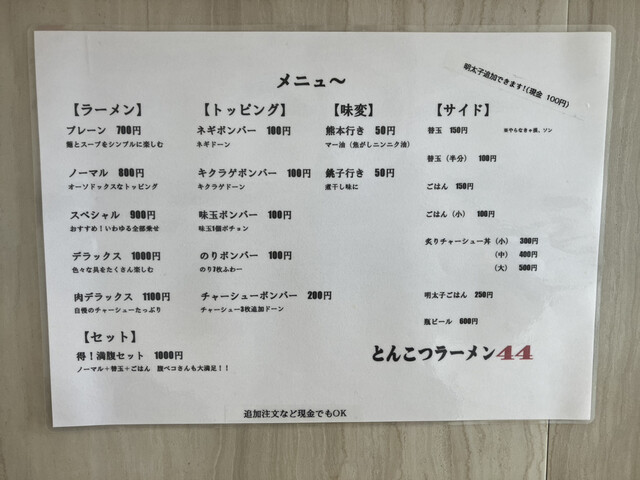 メニュ～
明太子追加できます!(現金 100円)
【ラーメン】
プレーン 700円
麺とスープをシンプルに楽しむ
ノーマル 800円
オーソドックスなトッピング
スペシャル 900円
おすすめ!いわゆる全部乗せ
デラックス 1000円
色々な具をたくさん楽しむ
肉デラックス 1100円
自慢のチャーシューたっぷり
【セット】
得!満腹セット 1000円
ノーマル+替玉+ごはん 腹ペコさんも大満足!!
【トッピング】
ネギボンバー 100円
ネギドーン
キクラゲボンバー 100円
キクラゲドーン
味玉ボンバー 100円
味玉1個ポチョン
のりボンバー 100円
のり7枚ふわー
チャーシューボンバー 200円
チャーシュー3枚追加ドーン
【味変】
熊本行き 50円
マー油(焦がしニンニク油)
銚子行き 50円
煮干し味に
【サイド】
替玉 150円
※やらなきゃ損、ソン
替玉(半分) 100円
ごはん 150円
ごはん(小) 100円
炙りチャーシュー丼(小) 300円
(中) 400円
(大) 500円
明太子ごはん 250円
瓶ビール 600円
とんこつラーメン44
追加注文など現金でもOK